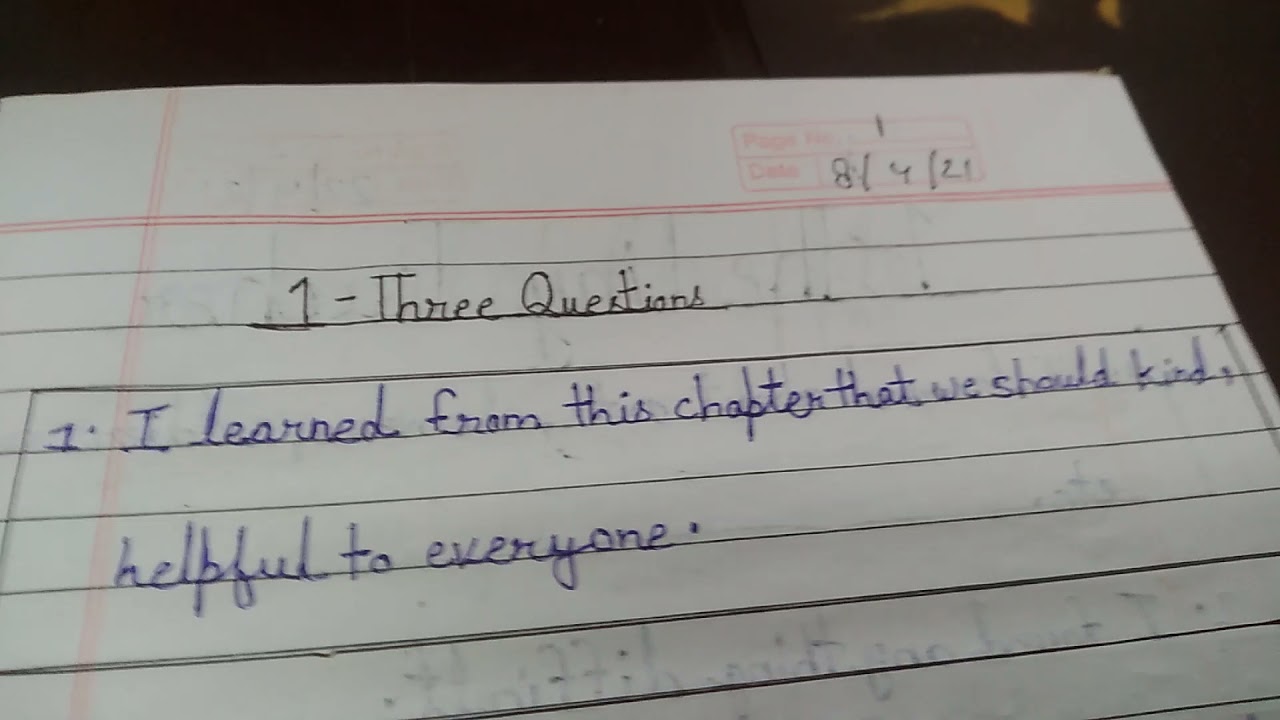 Page No. 1
Date 8/4/21
1 - Three Questions
1. I learned from this chapter that we should kind,
helpful to everyone.